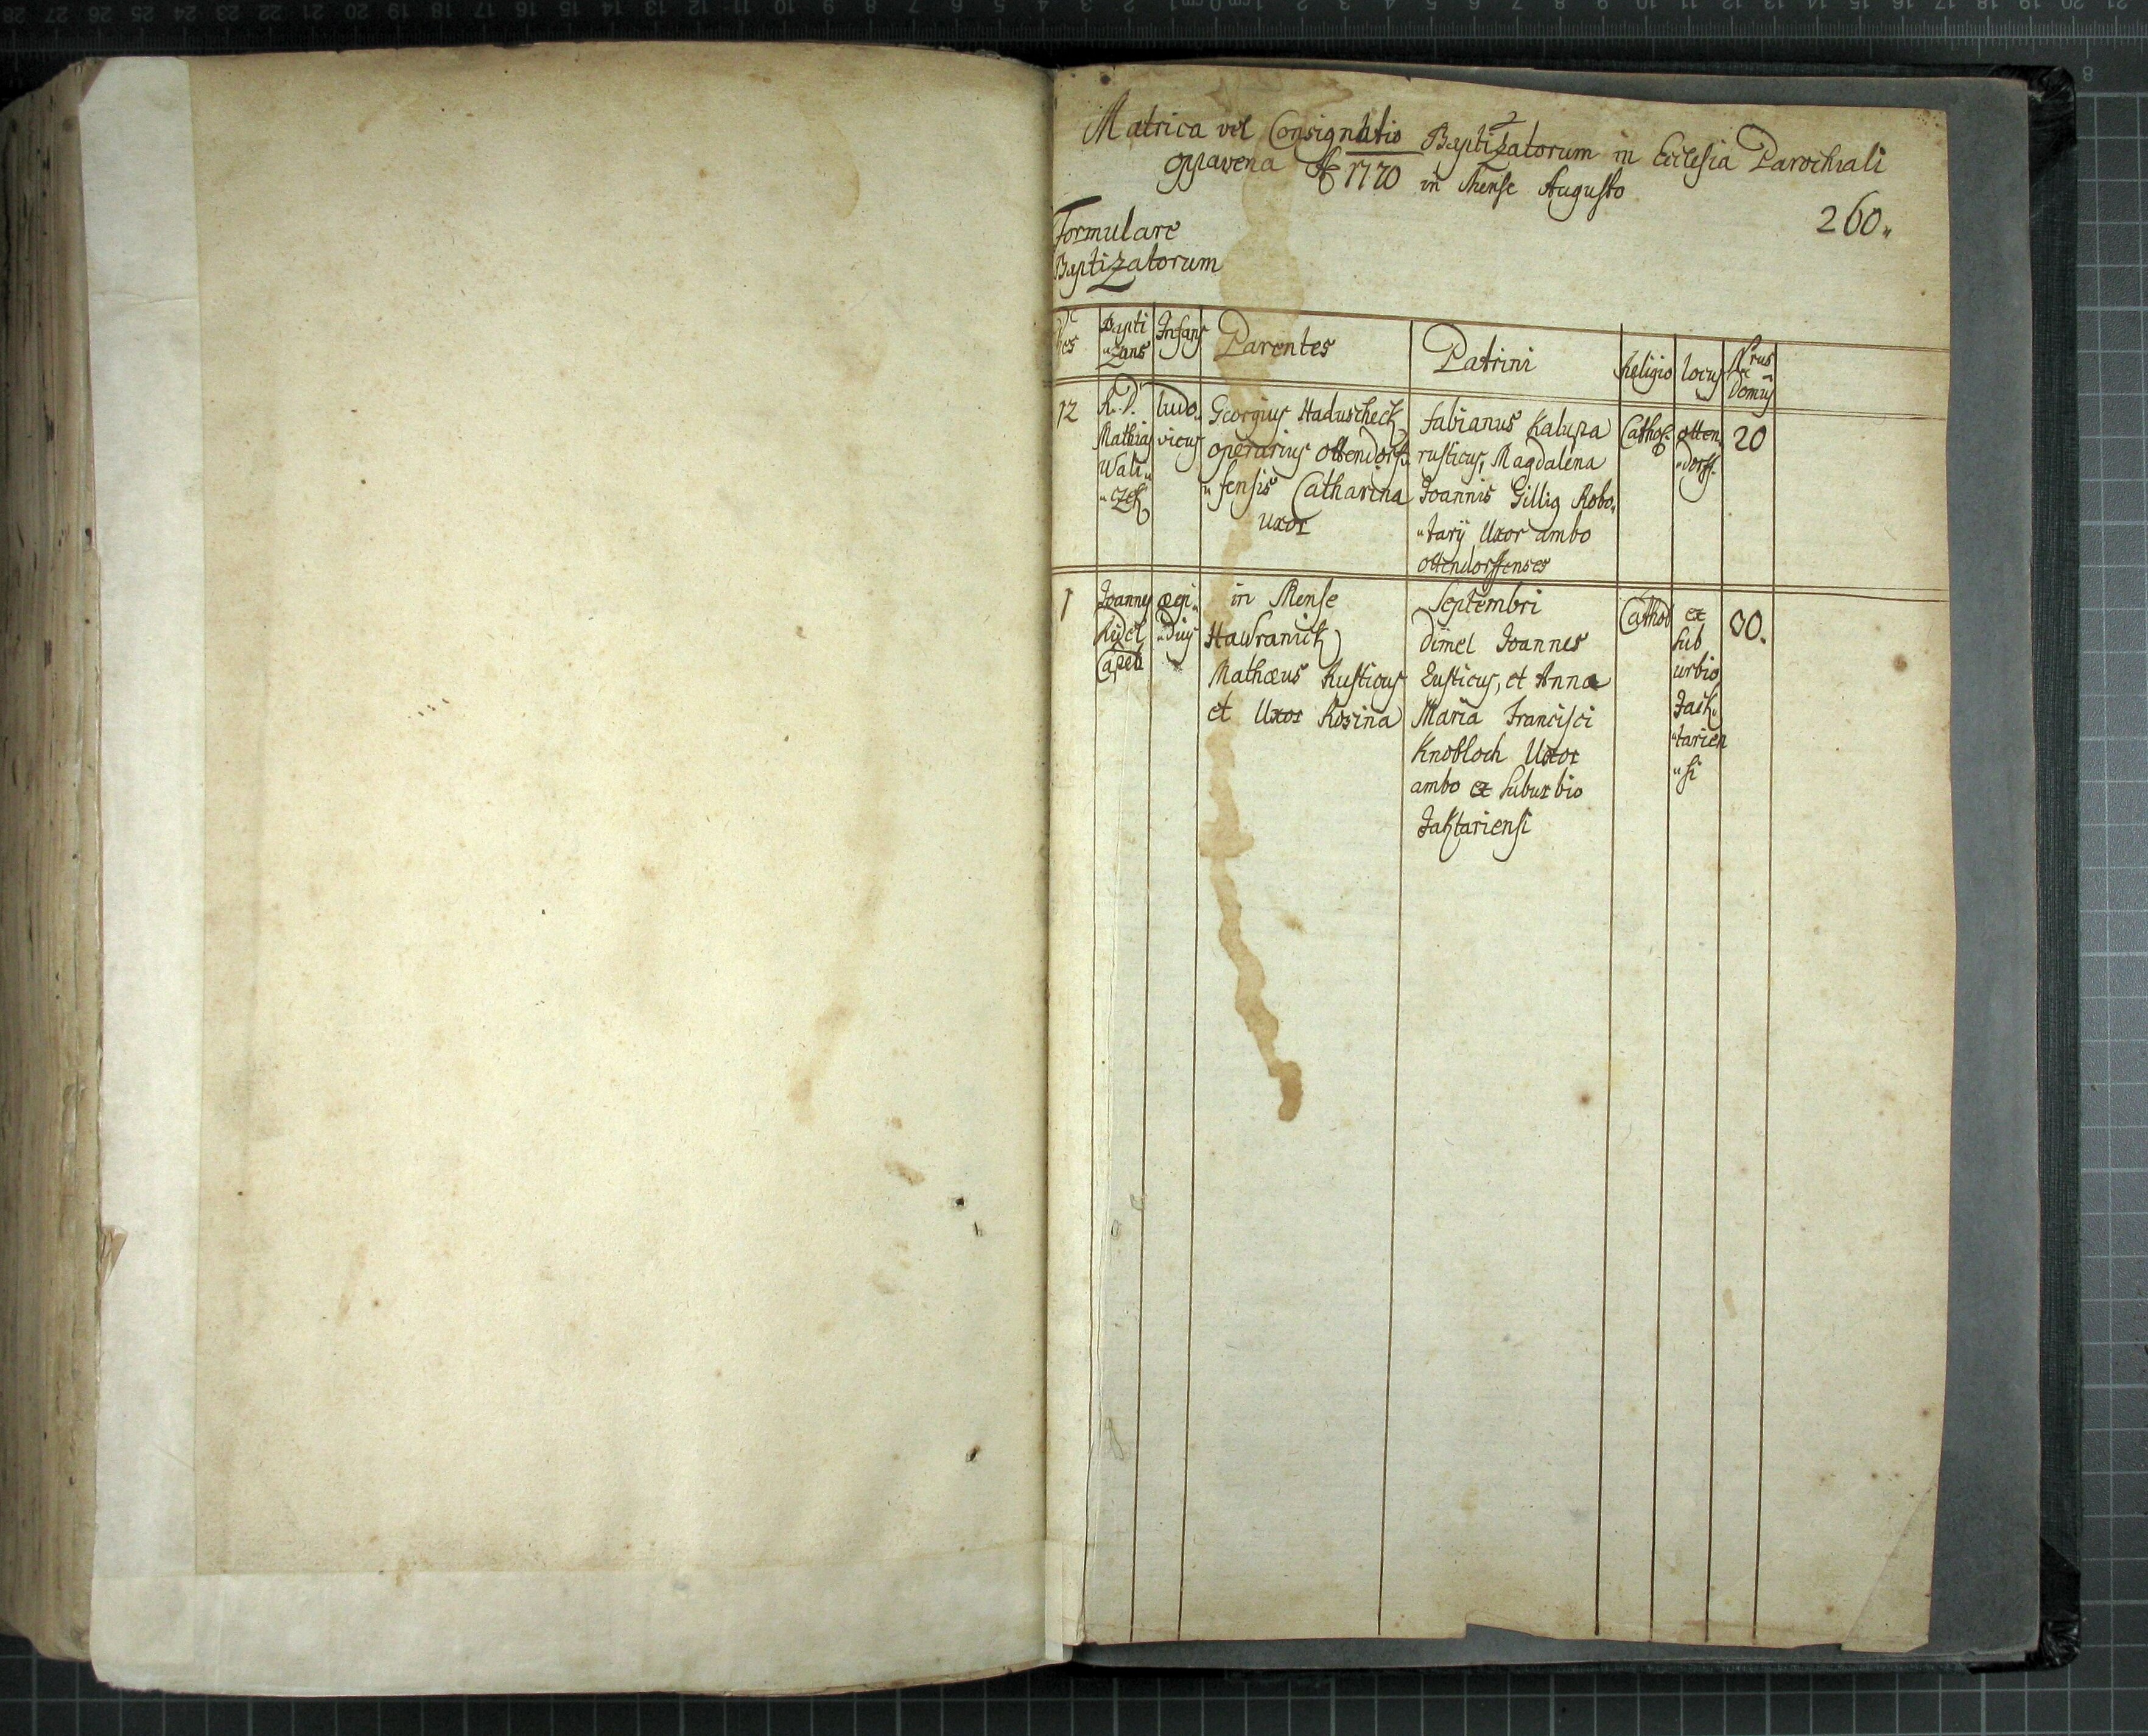 Matrica vel Consignatio Baptizatorum in Ecclesia Parochiali
oppavena 1770 in Mense Augusto
260.
Formulare
Baptizatorum
Bapti
"zans
Infans
Parentes
Patrini
Religio
locus
Nrus
Domus
12
R. P.
Mathias
Wali"
"czek
ludo"
vicus
Georgius Haduscheck
operarius Ottendorf"
"fensis Catharina
uxor
Fabianus Kalupa
rusticus, Magdalena
Joannis Gillig Robo"
"tarij Uxor ambo
ottendorffenses
Cathol.
otten"
"dorff.
20
1
Joannes
Capel
aegi"
"dius
in Mense
Hawranick
Mathæus Rusticus
et Uxor Rosina
Septembri
Dimel Joannes
Rusticus, et Anna
Maria Francisci
Knobloch Uxor
ambo ex suburbio
Jaktariensi
Cathol
ex
sub
urbio
Jack"
"tarien
"si
00.